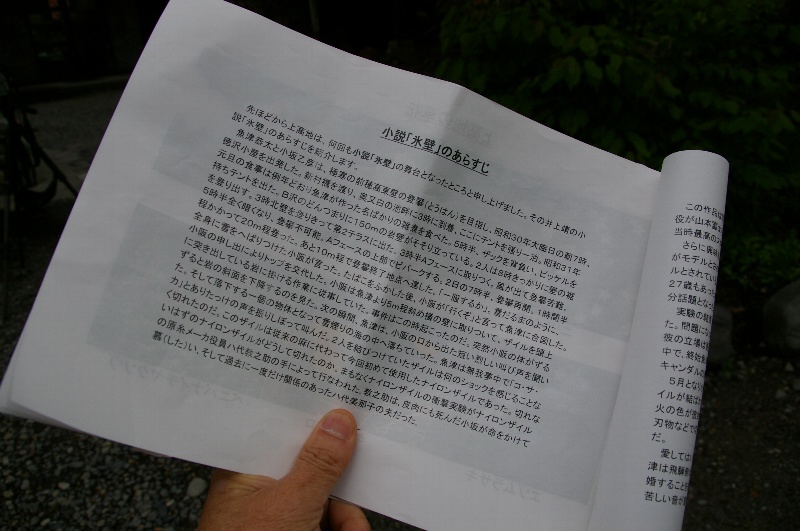 小説「氷壁」のあらすじ
先ほどから上高地は、何回も小説「氷壁」の舞台となったところと申し上げました。その井上靖の小
説「氷壁」のあらすじを紹介します。
魚津恭太と小坂乙彦は、極寒の前穂高東壁の登攀(とうはん)を目指し、昭和30年大晦日の朝7時、
徳沢小屋を出発した。新村橋を渡り、奥又白の池畔に3時に到着、ここにテントを張り一泊。昭和31年
元旦の食事は例年どおり魚津が作った名ばかりの雑煮を食べた。5時半、ザックを背負い、ピッケルを
持ちテントを出た。B沢のどんつまりに150mの岩壁がそそり立っている。2人は8時きっかりに壁の裾
を登り出す。3時北壁を登りきって第2テラスに出た。3時半Aフェースに取りつく。風が出て登攀苦難。
5時半全く暗くなり、登攀不可能。Aフェースの上部でビバークする。2日の7時半、登攀再開。1時間半
程かかって20m程登った。あと10m程で登攀終了地点へ達した。「一服するか」。雪だるまのように、
全身に雪をへばりつけた小坂が言った。たばこをふかした後、小坂が「行くぞ」と言って魚津に合図した。
小坂の申し出によりトップを交代した。小坂は魚津より5m程斜め横の壁に取りついて、ザイルを頭上
に突き出している岩に掛ける作業に従事していた。事件はこの時起こったのだ。突然小坂の体がずる
ずると岩の斜面を下降するのを見た。次の瞬間、魚津は、小坂の口から出た短い烈しい叫び声を聞い
た。そして落下する一個の物体となって雪煙りの海の中へ落ちていった。魚津は無我夢中で「コ・サ・
カ」とありたっけの声を振りしぼって叫んだ。2人を結びつけていたザイルは何のショックを感じることな
く切れたのだ。このザイルは従来の麻に代わって今回初めて使用したナイロンザイルであった。切れな
いはずのナイロンザイルがどうして切れたのか。まもなくナイロンザイルの衝撃実験がナイロンザイル
の原糸メーカ役員八代教之助の手によって行なわれた。教之助は、皮肉にも死んだ小坂が命をかけて
慕(した)い、そして過去に一度だけ関係のあった八代美那子の夫だった。
この作品は
役が山本富
当時最高の
さらに興味
がモデルとさ
ルとされてい
27歳もあっ
分話題となっ
実験の結
た。問題に
彼の立場は
中で、終始
キャンダルの
5月とな
イルが結ば
火の色が
刃物などで
だ。
愛しては
津は飛騨側
婚すること
苦しい音が